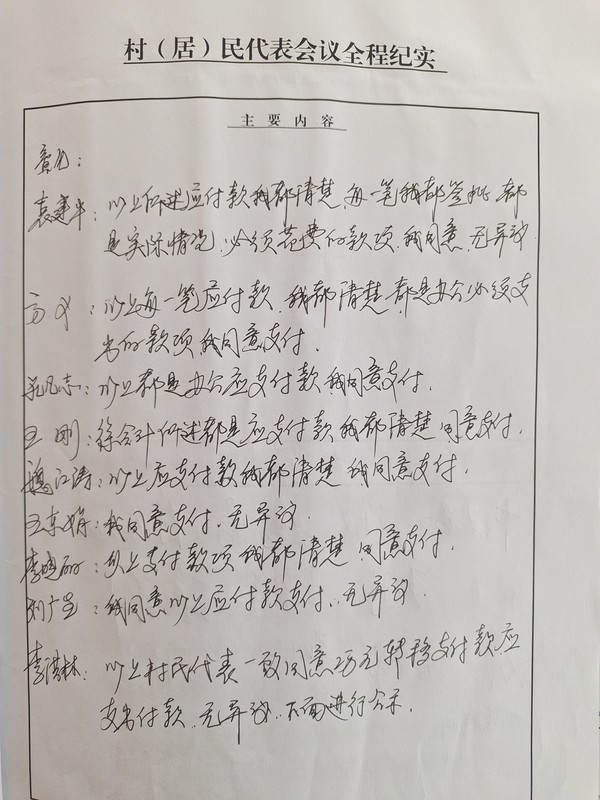 村（居）民代表会议全程纪实
主要内容
意见：
袁建华：以上所述应付款我都清楚，每一笔我都签批，都
是实际情况，必须花费的款项，我同意，无异议
方义：以上每一笔应付款，我都清楚都是办公必须支
出的款项，我同意支付．
凡志：以上都是办公应支付款，我同意支付．
王刚：徐会计所述都是应支付款，我都清楚，同意支付．
魏江涛：以上应支付款我都清楚，我同意支付．
王东娟：我同意支付，无异议．
李 ：以上支付款项我都清楚，同意支付．
刘广 ：我同意以上应付款支付，无异议．
李洪林：以上村民代表一致同意 万元转移支付款应
支出付款，无异议，下面进行公示．